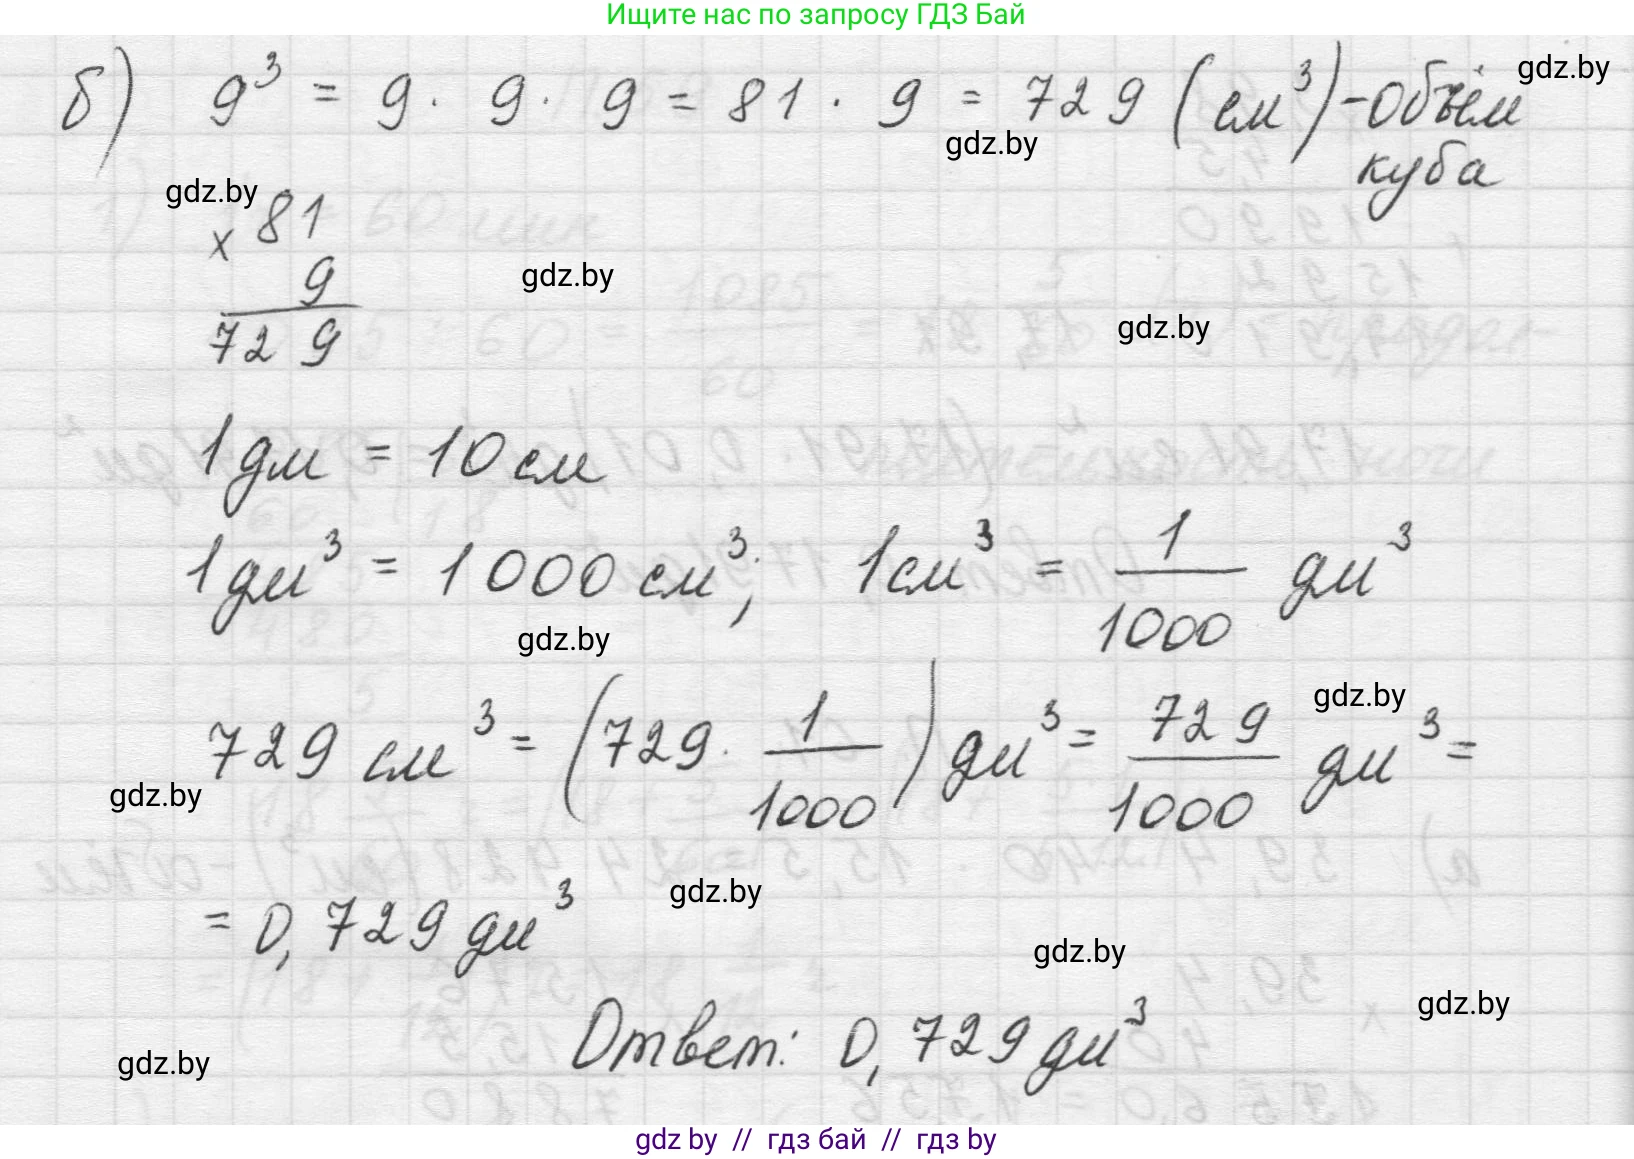 Ищите нас по запросу ГДЗ Бай
б) 9³ = 9 · 9 · 9 = 81 · 9 = 729 (см³) - объём
куба
gdz.by
gdz.by
gdz.by
× 81
9
729
gdz.by
gdz.by
1 дм = 10 см
1 дм³ = 1000 см³; 1 см³ = 1/1000 дм³
gdz.by
729 см³ = (729 · 1/1000) дм³ = 729/1000 дм³ =
gdz.by
gdz.by
= 0,729 дм³
gdz.by
gdz.by
gdz.by
Ответ: 0,729 дм³
gdz.by
gdz by // гдз бай // гдз by